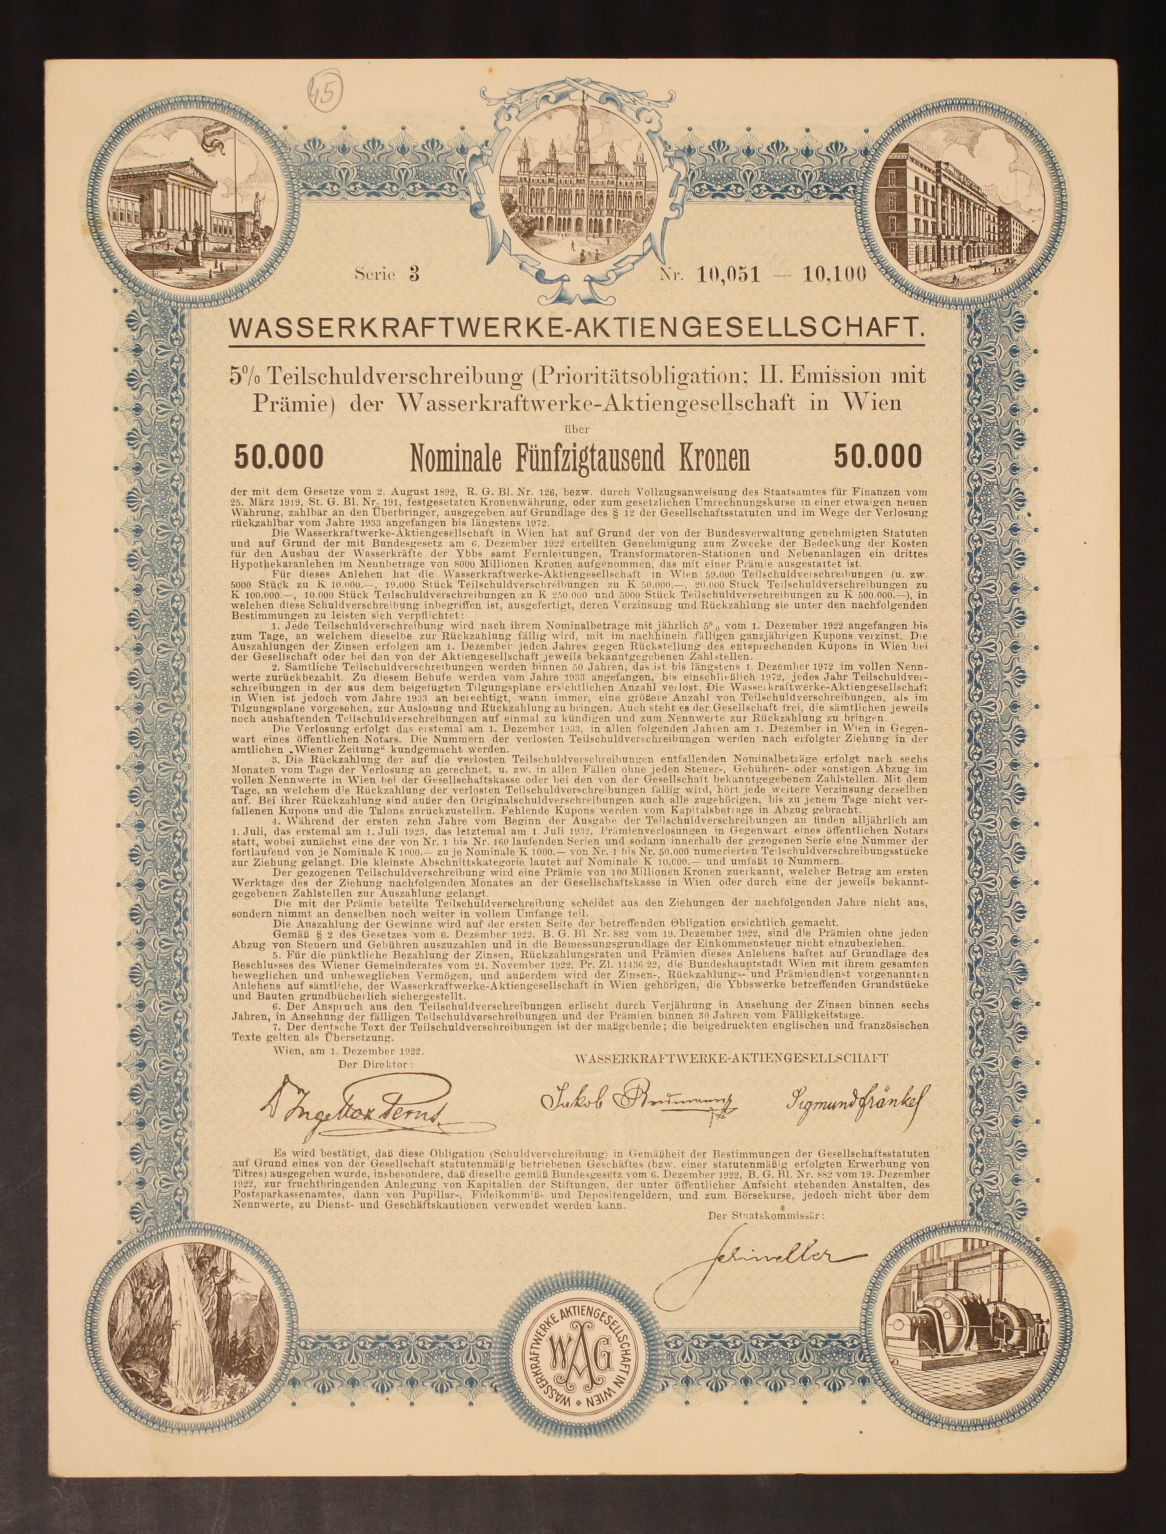 45
Serie 3
Nr. 10,051 — 10,100
WASSERKRAFTWERKE-AKTIENGESELLSCHAFT.
5% Teilschuldverschreibung (Prioritätsobligation; II. Emission mit
Prämie) der Wasserkraftwerke-Aktiengesellschaft in Wien
über
50.000 Nominale Fünfzigtausend Kronen 50.000
der mit dem Gesetze vom 2. August 1892, R. G. Bl. Nr. 126, bezw. durch Vollzugsanweisung des Staatsamtes für Finanzen vom
25. März 1919, St. G. Bl. Nr. 191, festgesetzten Kronenwährung, oder zum gesetzlichen Umrechnungskurse in einer etwaigen neuen
Währung, zahlbar an den Überbringer, ausgegeben auf Grundlage des § 12 der Gesellschaftsstatuten und im Wege der Verlosung
rückzahlbar vom Jahre 1933 angefangen bis längstens 1972.
Die Wasserkraftwerke-Aktiengesellschaft in Wien hat auf Grund der von der Bundesverwaltung genehmigten Statuten
und auf Grund der mit Bundesgesetz am 6. Dezember 1922 erteilten Genehmigung zum Zwecke der Bedeckung der Kosten
für den Ausbau der Wasserkräfte der Ybbs samt Fernleitungen, Transformatoren-Stationen und Nebenanlagen ein drittes
Hypothekaranlehen im Nennbetrage von 8000 Millionen Kronen aufgenommen, das mit einer Prämie ausgestattet ist.
Für dieses Anlehen hat die Wasserkraftwerke-Aktiengesellschaft in Wien 59.000 Teilschuldverschreibungen (u. zw.
5000 Stück zu K 10.000.—, 19.000 Stück Teilschuldverschreibungen zu K 50.000.—, 20.000 Stück Teilschuldverschreibungen zu
K 100.000.—, 10.000 Stück Teilschuldverschreibungen zu K 250.000 und 5000 Stück Teilschuldverschreibungen zu K 500.000.—), in
welchen diese Schuldverschreibung inbegriffen ist, ausgefertigt, deren Verzinsung und Rückzahlung sie unter den nachfolgenden
Bestimmungen zu leisten sich verpflichtet:
1. Jede Teilschuldverschreibung wird nach ihrem Nominalbetrage mit jährlich 5% vom 1. Dezember 1922 angefangen bis
zum Tage, an welchem dieselbe zur Rückzahlung fällig wird, mit im nachhinein fälligen ganzjährigen Kupons verzinst. Die
Auszahlungen der Zinsen erfolgen am 1. Dezember jeden Jahres gegen Rückstellung des entsprechenden Kupons in Wien bei
der Gesellschaft oder bei den von der Aktiengesellschaft jeweils bekanntgegebenen Zahlstellen.
2. Sämtliche Teilschuldverschreibungen werden binnen 50 Jahren, das ist bis längstens 1. Dezember 1972 im vollen Nenn-
werte zurückbezahlt. Zu diesem Behufe werden vom Jahre 1933 angefangen, bis einschließlich 1972, jedes Jahr Teilschuldver-
schreibungen in der aus dem beigefügten Tilgungsplane ersichtlichen Anzahl verlost. Die Wasserkraftwerke-Aktiengesellschaft
in Wien ist jedoch vom Jahre 1933 an berechtigt, wann immer, eine größere Anzahl von Teilschuldverschreibungen, als im
Tilgungsplane vorgesehen, zur Auslosung und Rückzahlung zu bringen. Auch steht es der Gesellschaft frei, die sämtlichen jeweils
noch aushaftenden Teilschuldverschreibungen auf einmal zu kündigen und zum Nennwerte zur Rückzahlung zu bringen.
Die Verlosung erfolgt das erstemal am 1. Dezember 1933, in allen folgenden Jahren am 1. Dezember in Wien in Gegen-
wart eines öffentlichen Notars. Die Nummern der verlosten Teilschuldverschreibungen werden nach erfolgter Ziehung in der
amtlichen „Wiener Zeitung“ kundgemacht werden.
3. Die Rückzahlung der auf die verlosten Teilschuldverschreibungen entfallenden Nominalbeträge erfolgt nach sechs
Monaten vom Tage der Verlosung an gerechnet, u. zw. in allen Fällen ohne jeden Steuer-, Gebühren- oder sonstigen Abzug im
vollen Nennwerte in Wien bei der Gesellschaftskasse oder bei den von der Gesellschaft bekanntgegebenen Zahlstellen. Mit dem
Tage, an welchem die Rückzahlung der verlosten Teilschuldverschreibungen fällig wird, hört jede weitere Verzinsung derselben
auf. Bei ihrer Rückzahlung sind außer den Originalschuldverschreibungen auch alle zugehörigen, bis zu jenem Tage nicht ver-
fallenen Kupons und die Talons zurückzustellen. Fehlende Kupons werden vom Kapitalsbetrage in Abzug gebracht.
4. Während der ersten zehn Jahre vom Beginn der Ausgabe der Teilschuldverschreibungen an finden alljährlich am
1. Juli, das erstemal am 1. Juli 1923, das letztemal am 1. Juli 1932, Prämienverlosungen in Gegenwart eines öffentlichen Notars
statt, wobei zunächst eine der von Nr. 1 bis Nr. 160 laufenden Serien und sodann innerhalb der gezogenen Serie eine Nummer der
fortlaufend von je Nominale K 1000.— zu je Nominale K 1000.— von Nr. 1 bis Nr. 50.000 numerierten Teilschuldverschreibungsstücke
zur Ziehung gelangt. Die kleinste Abschnittskategorie lautet auf Nominale K 10.000.— und umfaßt 10 Nummern.
Der gezogenen Teilschuldverschreibung wird eine Prämie von 100 Millionen Kronen zuerkannt, welcher Betrag am ersten
Werktage des der Ziehung nachfolgenden Monates an der Gesellschaftskasse in Wien oder durch eine der jeweils bekannt-
gegebenen Zahlstellen zur Auszahlung gelangt.
Die mit der Prämie beteilte Teilschuldverschreibung scheidet aus den Ziehungen der nachfolgenden Jahre nicht aus,
sondern nimmt an denselben noch weiter in vollem Umfange teil.
Die Auszahlung der Gewinne wird auf der ersten Seite der betreffenden Obligation ersichtlich gemacht.
Gemäß § 2 des Gesetzes vom 6. Dezember 1922, B. G. Bl Nr. 882 vom 19. Dezember 1922, sind die Prämien ohne jeden
Abzug von Steuern und Gebühren auszuzahlen und in die Bemessungsgrundlage der Einkommensteuer nicht einzubeziehen.
5. Für die pünktliche Bezahlung der Zinsen, Rückzahlungsraten und Prämien dieses Anlehens haftet auf Grundlage des
Beschlusses des Wiener Gemeinderates vom 24. November 1922, Pr. Zl. 11436/22, die Bundeshauptstadt Wien mit ihrem gesamten
beweglichen und unbeweglichen Vermögen, und außerdem wird der Zinsen-, Rückzahlungs- und Prämiendienst vorgenannten
Anlehens auf sämtliche, der Wasserkraftwerke-Aktiengesellschaft in Wien gehörigen, die Ybbswerke betreffenden Grundstücke
und Bauten grundbücherlich sichergestellt.
6. Der Anspruch aus den Teilschuldverschreibungen erlischt durch Verjährung in Ansehung der Zinsen binnen sechs
Jahren, in Ansehung der fälligen Teilschuldverschreibungen und der Prämien binnen 30 Jahren vom Fälligkeitstage.
7. Der deutsche Text der Teilschuldverschreibungen ist der maßgebende; die beigedruckten englischen und französischen
Texte gelten als Übersetzung.
Wien, am 1. Dezember 1922.
Der Direktor:
WASSERKRAFTWERKE-AKTIENGESELLSCHAFT
Jakob Reumann
Sigmund Fränkel
Es wird bestätigt, daß diese Obligation (Schuldverschreibung) in Gemäßheit der Bestimmungen der Gesellschaftsstatuten
auf Grund eines von der Gesellschaft statutenmäßig betriebenen Geschäftes (bzw. einer statutenmäßig erfolgten Erwerbung von
Titres) ausgegeben wurde, insbesondere, daß dieselbe gemäß Bundesgesetz vom 6. Dezember 1922, B. G. Bl. Nr. 882 vom 19. Dezember
1922, zur fruchtbringenden Anlegung von Kapitalien der Stiftungen, der unter öffentlicher Aufsicht stehenden Anstalten, des
Postsparkassenamtes, dann von Pupillar-, Fideikommiß- und Depositengeldern, und zum Börsekurse, jedoch nicht über dem
Nennwerte, zu Dienst- und Geschäftskautionen verwendet werden kann.
Der Staatskommissär:
WASSERKRAFTWERKE AKTIENGESELLSCHAFT IN WIEN
WAG